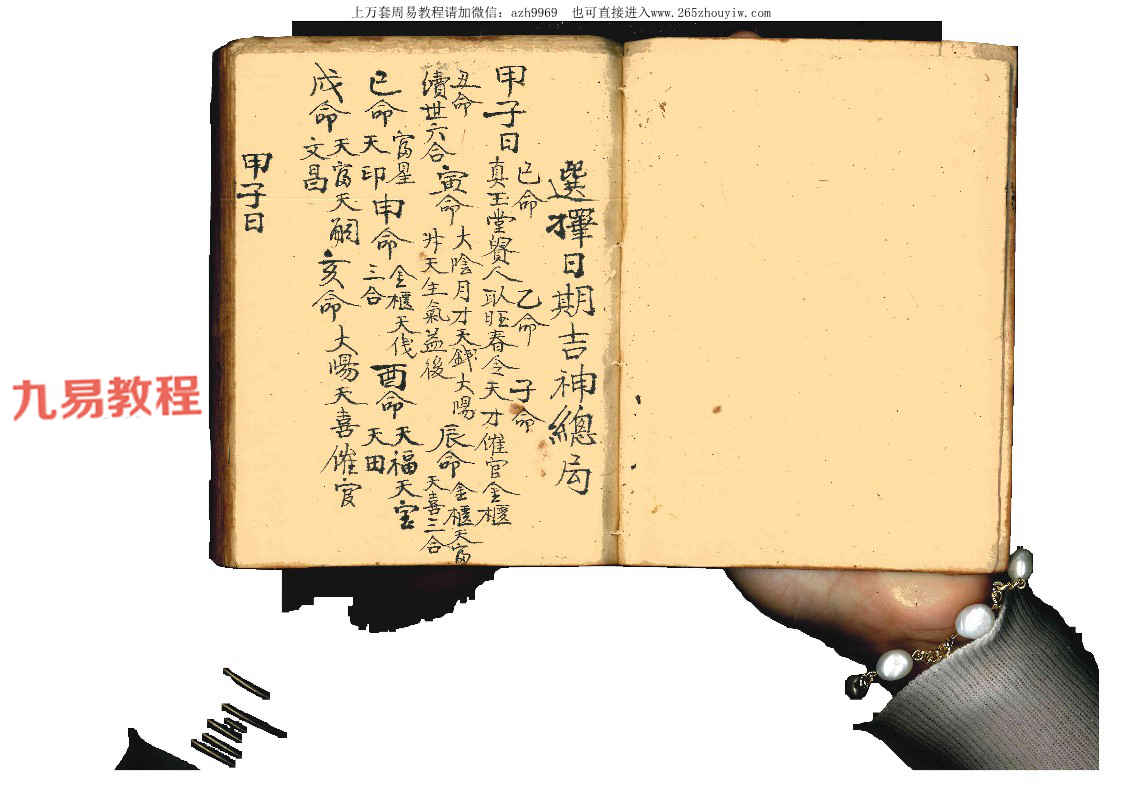 上万套周易教程请加微信：azh9969 也可直接进入www.265zhouyiw.com
選擇日期吉神總局
甲子日 已命 乙命 子命
真玉堂貴人 取旺春令天才催官金櫃
丑命 續世六合
寅命 大陰月才天錢大陽 天生氣益後
辰命 金櫃天富 天喜三合
巳命 富星 天印
申命 金櫃天伐 三合
酉命 天福天官 天田
戌命 天富天嗣 文昌
亥命 大陽天喜催官
甲子日
九易教程